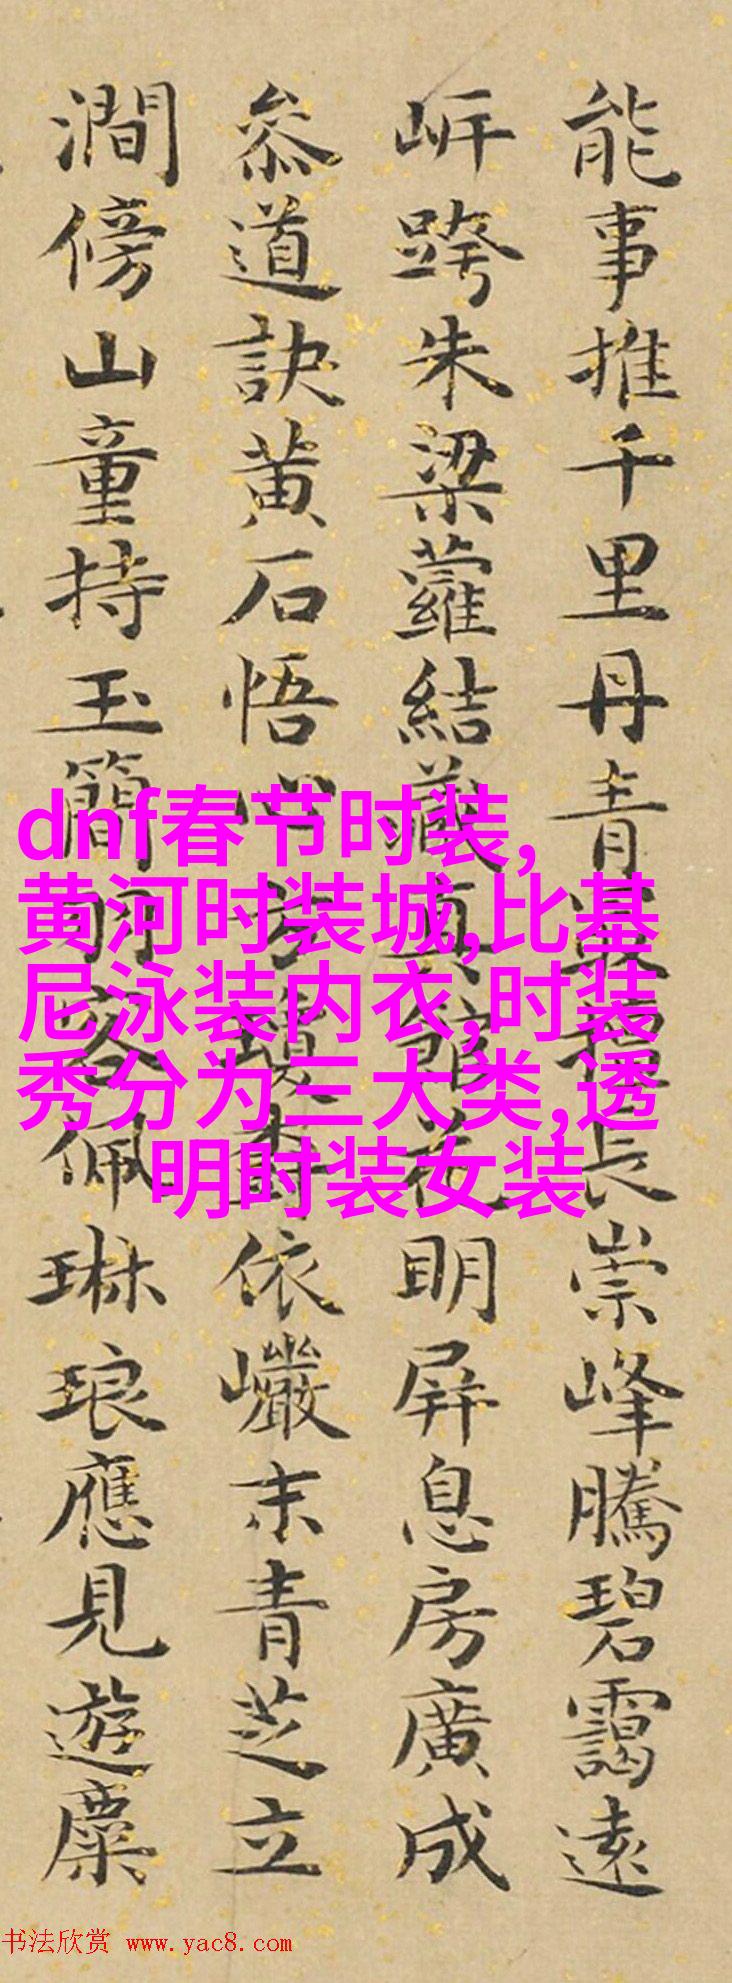 能事推千里丹青最長崇峰騰碧靄遠
岍跨朱梁蘿結藏真館花明屏息房廣成
叅道訣黄石悟心依巘末青芝立
澗傍山童持玉簡明容佩琳琅應見遊麋
dnf春节时装,
黄河时装城,比基
尼泳装内衣,时装
秀分为三大类,透
明时装女装
书法欣赏 www.yac8.com